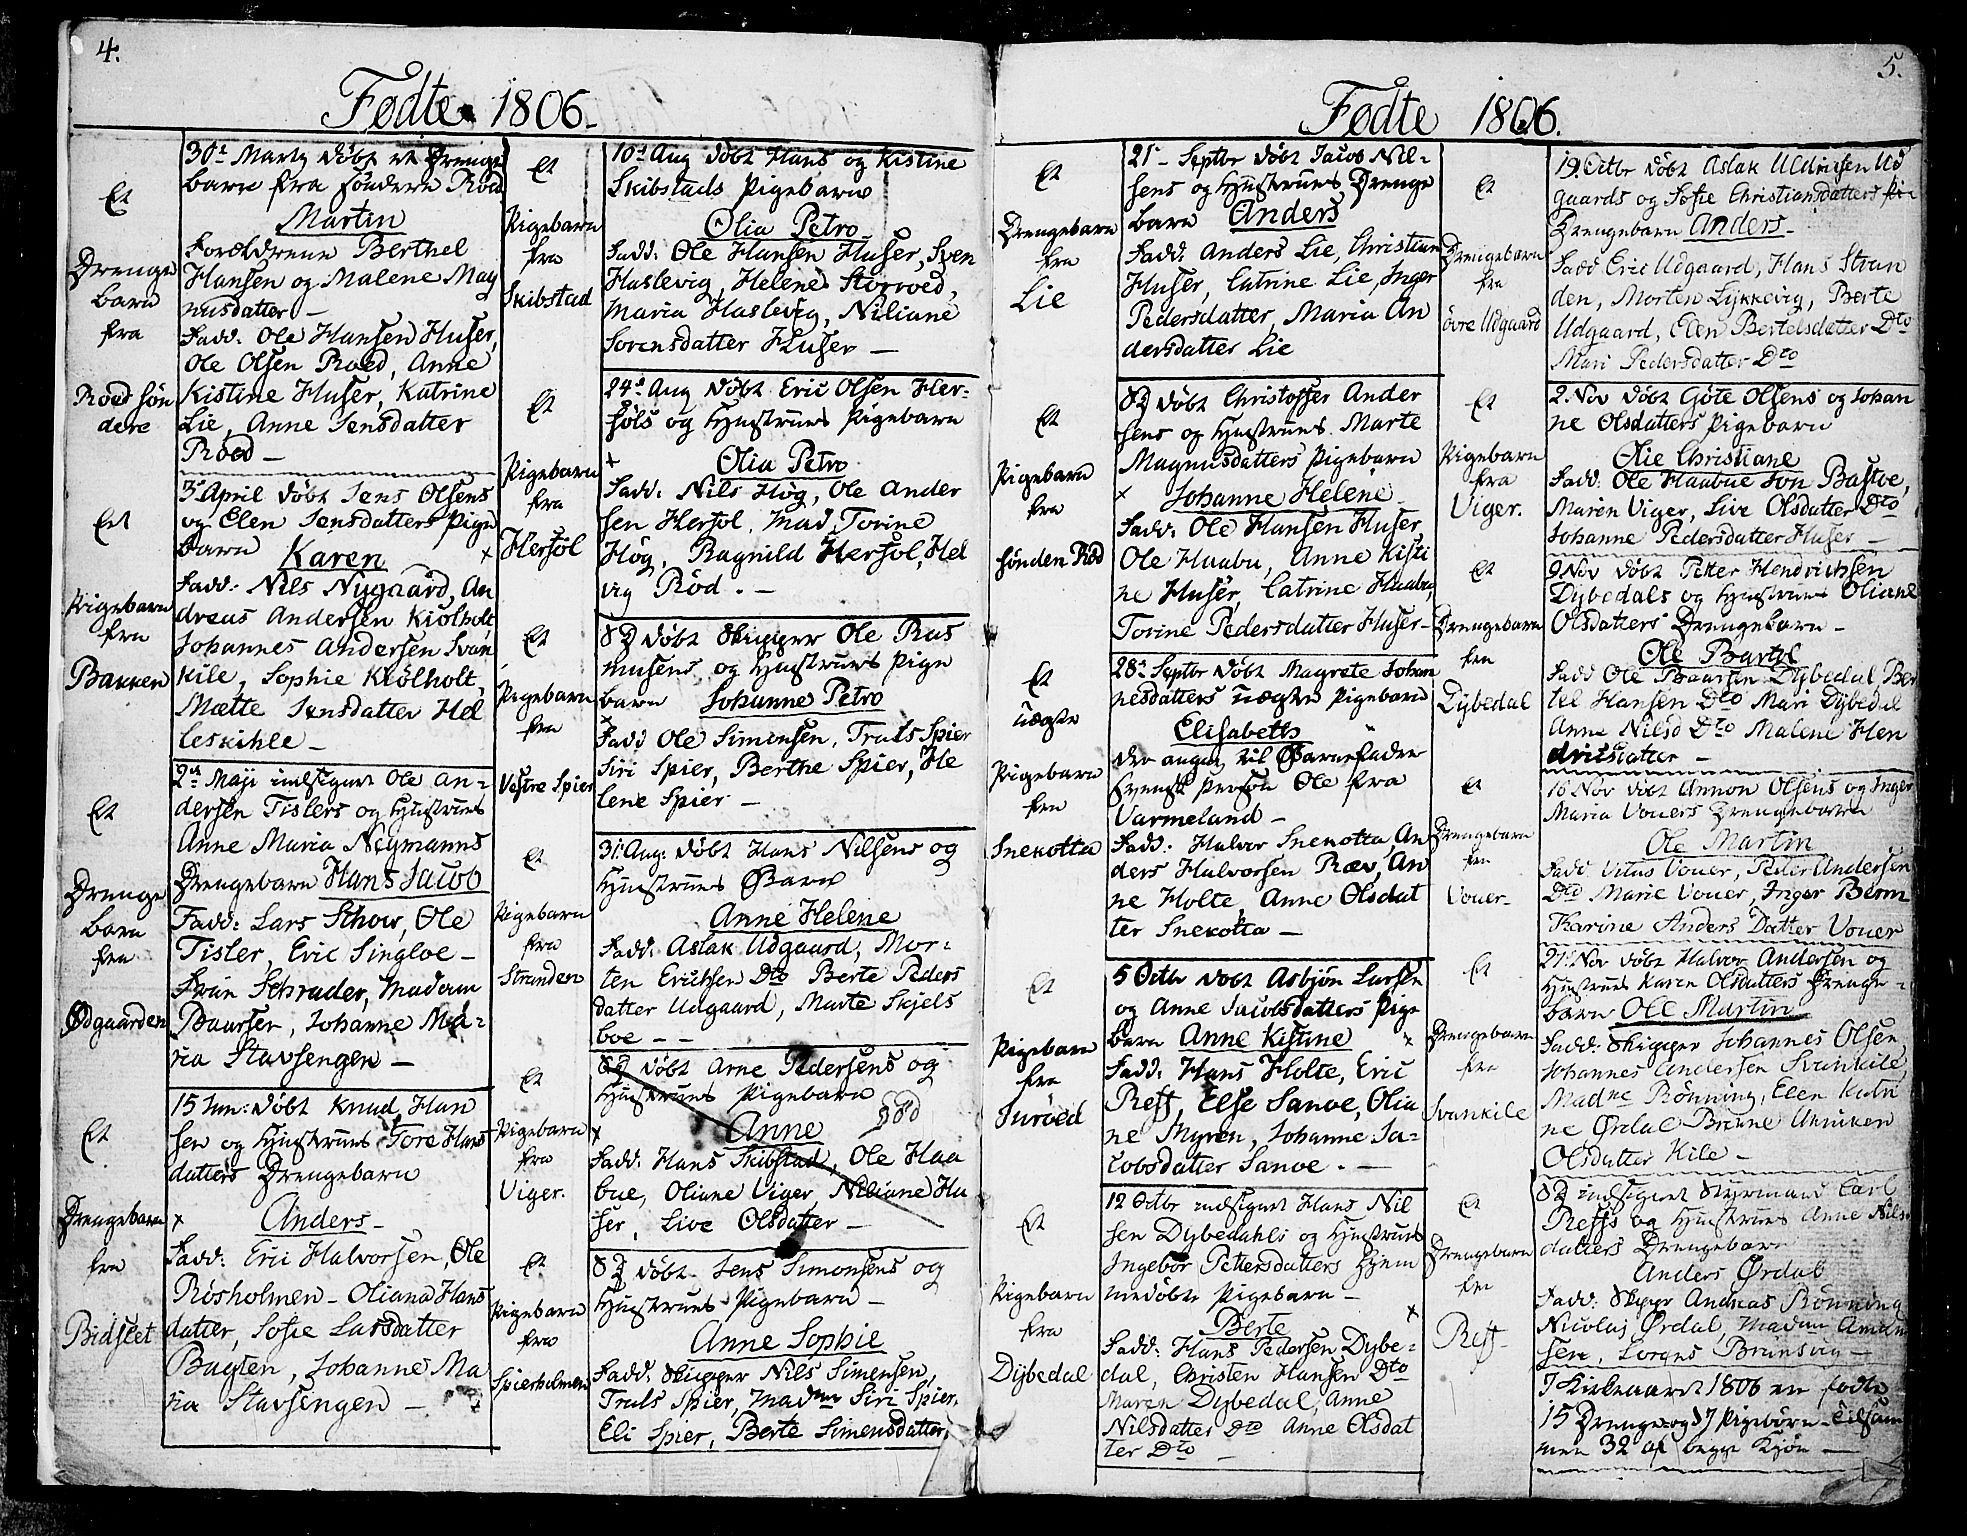 4.
Fødte 1806.
Et
Drenge
barn
fra
Roed søn
dere
30t Marty døbt et Drenge
barn fra søndere Roed
Martin
Forældrene Berthel
Hansen og Malene Mag
nusdatter –
Fadd: Ole Hansen Huser,
Ole Olsen Roed, Anne
Kistine Huser, Katrine
Lie, Anne Jensdatter
Roed –
Et
Pigebarn
fra
Bakken
3t April døbt Jens Olsens
og Elen Jensdatters Pige
barn Karen
Fadd: Nils Nygaard, An
dreas Andersen Kiölholt,
Johannes Andersen Svan
kile, Sophie Kiölholt,
Mætte Jensdatter Hel
leskihle –
Et
Drenge
barn
fra
Ødgaarden
2de Maji indsignet Ole An-
dersen Tislers og Hustrues
Anne Maria Nigmanns
Drengebarn Hans Jacob
Fadd: Lars Schow, Ole
Tisler, Eric Singloe –
Fruin Schrader, Madam
Paursen, Johanne Ma-
ria Stavsengen –
Et
Drengebarn
fra
Bidslet
15 Jun: døbt Knud Han
sen og Hustrues Tore Hans
datters Drengebarn
Anders –
Fadd: Eric Halvorsen, Ole
Rösholmen – Oliana Hans
datter, Sofie Larsdatter
Bugten, Johanne Ma
ria Stavsengen –
Et
Pigebarn
fra
Skibstad
10t Aug døbt Hans og Kistine
Skibstads Pigebarn
Olia Petro
Fadd: Ole Hansen Huser, Sven
Haslevig, Helene Storroed,
Maria Haslevig, Niliane
Sorensdatter Huser –
Et
Pigebarn
fra
Hersöl
24t Aug døbt Eric Olsen Her-
söls og Hustrues Pigebarn
Olia Petro
Fadd: Nils Høg, Ole Ander
sen Hersol, Mad. Torine
Høg, Ragnild Hersol, Hel
vig Röd. –
Et
Pigebarn
fra
Vestre Spier
døbt Skipper Ole Ras
musens og Hustrues Pige
barn Johanne Petro
Fadd Ole Simonsen, Truls Spier
Siri Spier, Berthe Spier, He
lene Spier –
Et
Pigebarn
fra
Stranden
31: Aug: døbt Hans Nilsens og
Hustrues Barn
Anne Helene
Fadd: Aslak Udgaard, Mor-
ten Erichsen Dto Berte Peders
datter Udgaard, Marte Skjels
boe – –
Et
Pigebarn
fra
Viger.
døbt Arne Pedersens og
Hustrues Pigebarn
Anne död
Fadd: Hans Skibstad, Ole Haa
bue, Oliane Viger, Niliane Hu
ser, Live Olsdatter –
Et
Pigebarn
fra
Spierholmen
døbt Jens Simonsens og
Hustrues Pigebarn –
Anne Sophie
Fadd: Skipper Nils Simensen,
Truls Spier, Madm Siri Spier,
Eli Spier, Berte Simensdatter,
5.
Fødte 1806.
Et
Drengebarn
fra
Lie
21– Septbr døbt Jacob Nil-
sens og Hustrues Drenge
barn Anders
Fadd: Anders Lie, Christian
Huser, Catrine Lie, Inger
Pedersdatter, Maria An
dersdatter Lie
Et
Pigebarn
fra
sønden Röd
døbt Christoffer Ander
sens og Hustrues Marte
Magnusdatters Pigebarn
Johanne Helene
Fadd: Ole Hansen Huser
Ole Haabu, Anne Kisti
ne Huser, Catrine Haabu,
Torine Pedersdatter Huser –
Et
uægte
Pigebarn
fra
Snekotta
28t Septbr døbt Magrete Johan
nesdatters uægte Pigebarn
Elisabeth
der angav til Barnefader
svensk Person Ole fra
Varmeland –
Fadd: Halvor Snekotta An
ders Halvorsen Ræv, An
ne Holte, Anne Olsdat
ter Snekotta –
Et
Pigebarn
fra
Turöed
5 Octbr døbt Asbjön Larsen
og Anne Jacobsdatters Pige
barn Anne Kistine
Fadd: Hans Holte, Eric
Reff, Else Sanoe, Olia
ne Myren, Johanne Ja-
cobsdatter Sanoe. –
Et
Pigebarn
fra
Dybedal
12 Octbr indsignet Hans Nil
sen Dybedahls og Hustrues
Ingebör Pettersdatters hjem
medøbte Pigebarn –
Berte
Fadd: Hans Pedersen Dybe-
dal, Christen Hansen Dto
Maren Dybedal, Anne
Nilsdatter Dto Anne Olsdat
ter Dto –
Et
Drengebarn
fra
övre Udgaard
19 Octbr døbt Aslak Uldrichsen Ud
gaards og Sofie Christiansdatters
Drengebarn Anders –
Fadd Eric Udgaard, Hans Stran
den, Morten Lykkevig, Berte
Udgaard, Elen Bertelsdatter Dto
Mari Pedersdatter Dto
Et
Pigebarn
fra
Viger.
2. Nov døbt Göte Olsens og Johan
ne Olsdatters Pigebarn
Olie Christiane
Fadd: Ole Haabue Jon Bastoe,
Maren Viger, Live Olsdatter Dto
Johanne Pedersdatter Huser –
Et
Drengebarn
fra
Dybedal
9 Nov døbt Petter Hendrichsen
Dybedals og Hustrues Oliane
Olsdatters Drengebarn –
Ole Bartyl
Fadd Ole Paarsen Dybedal Ber
tel Hansen Dto Mari Dybedal
Anne Nilsd Dto Malene Hen
dricsdatter –
Et
Drengebarn
fra
Vouer
16 Nov døbt Annon Olsens og Inger
Maria Vouers Drengebarn
Ole Martin
Fadd. Vitus Vouer, Peder Andersen
Dto Marie Vouer, Inger Berm
Karine Anders Datter Vouer
Et
Drengebarn
fra
Svankile
21: Nov døbt Halvor Andersen og
Hustrues Karen Olsdatters Drenge-
barn Ole Martin
Fadd: Skipper Johannes Olsen
Johannes Andersen Svankile,
Madme Rönning, Elen Katri
ne Ørdal Brune Anniken
Olsdatter Kile –
Et
Drengebarn
fra
Reff
indsignet Styrmand Carl
Reffs og Hustrues Anne Nils-
datters Drengebarn
Anders Ørdal
Fadd: Skipper Andreas Rönning
Nicolaj Ørdal Madam Amun
sen, Lorens Brunsvig –
I Kirkeaaret 1806 er fødte
15 Drenge og 17 Pigebørn – tilsam
men 32 af begge Kjøn –